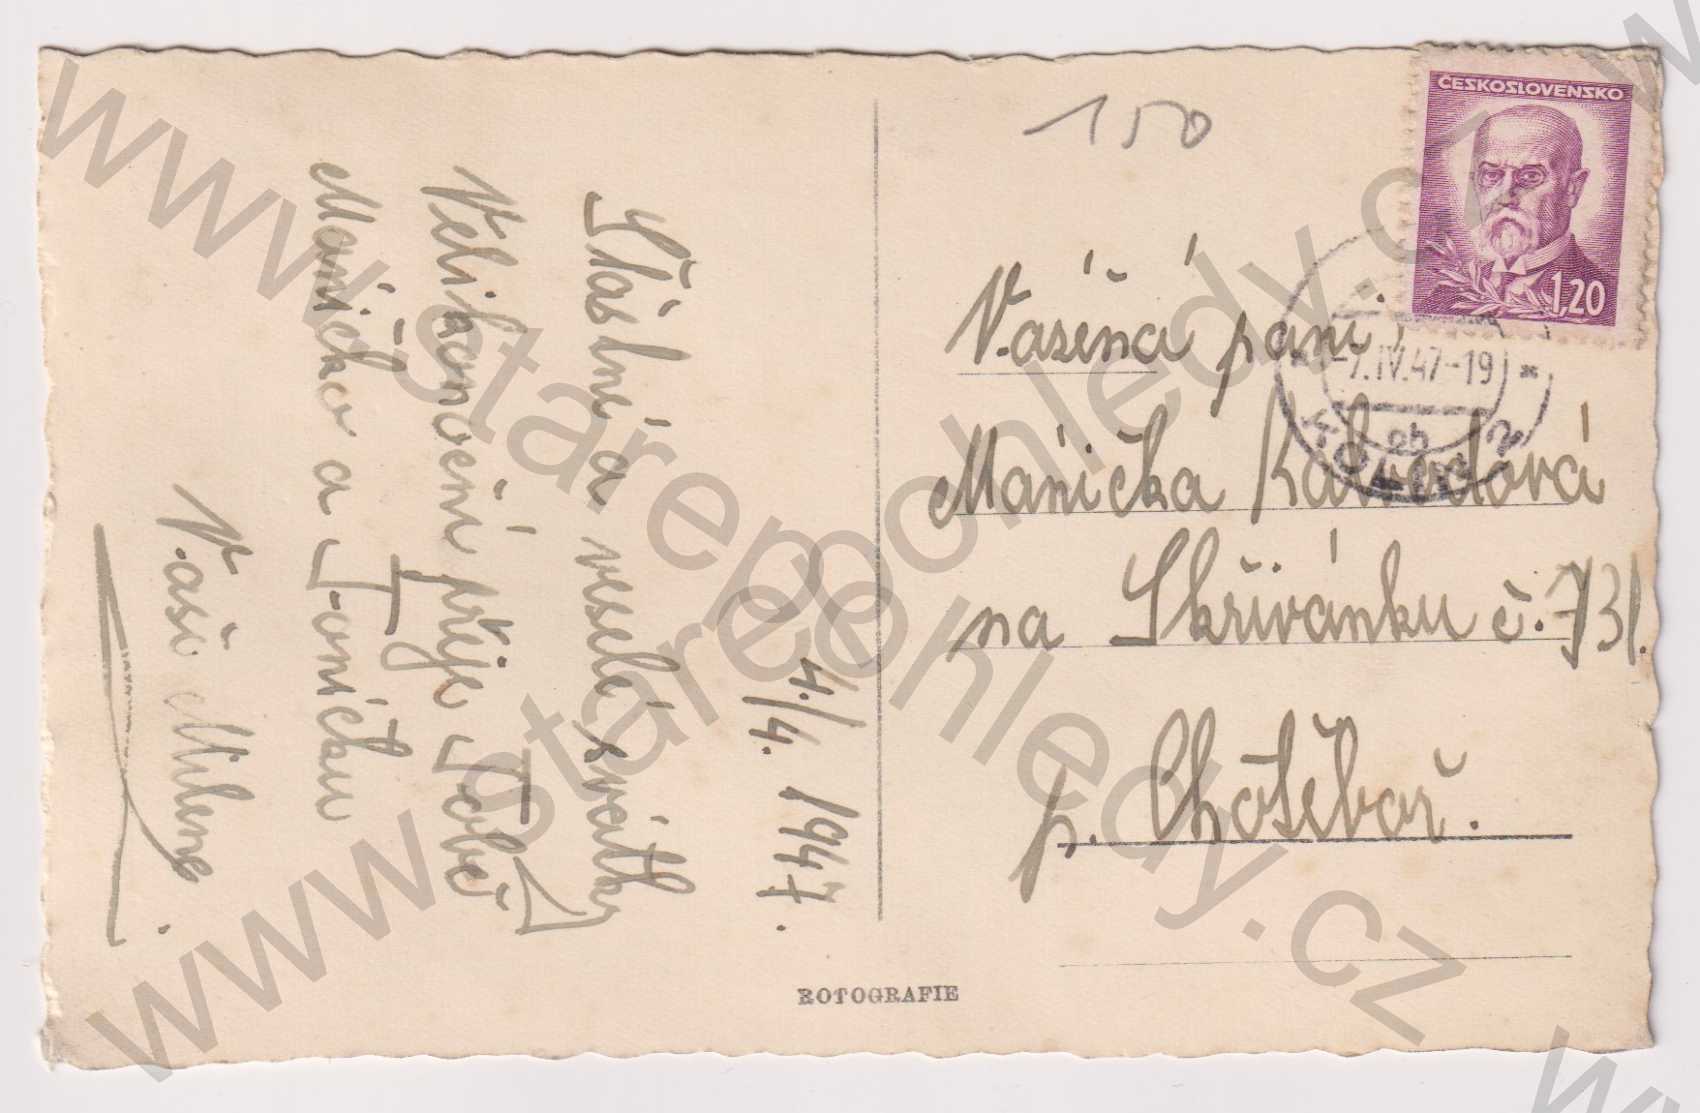 4./4. 1947.
Šťastné a veselé svátky
Velikonoční přeje Tobě
Maničko a Toníčku
Vaši Milena.
150
ČESKOSLOVENSKO
1,20
-7.IV.47-19
KOLÍN 2
Vážená paní
Mánička
na Skřivánku č. 731.
p. Chotěboř.
ROTOGRAFIE
www.starepohledy.cz
www.starepohledy.cz